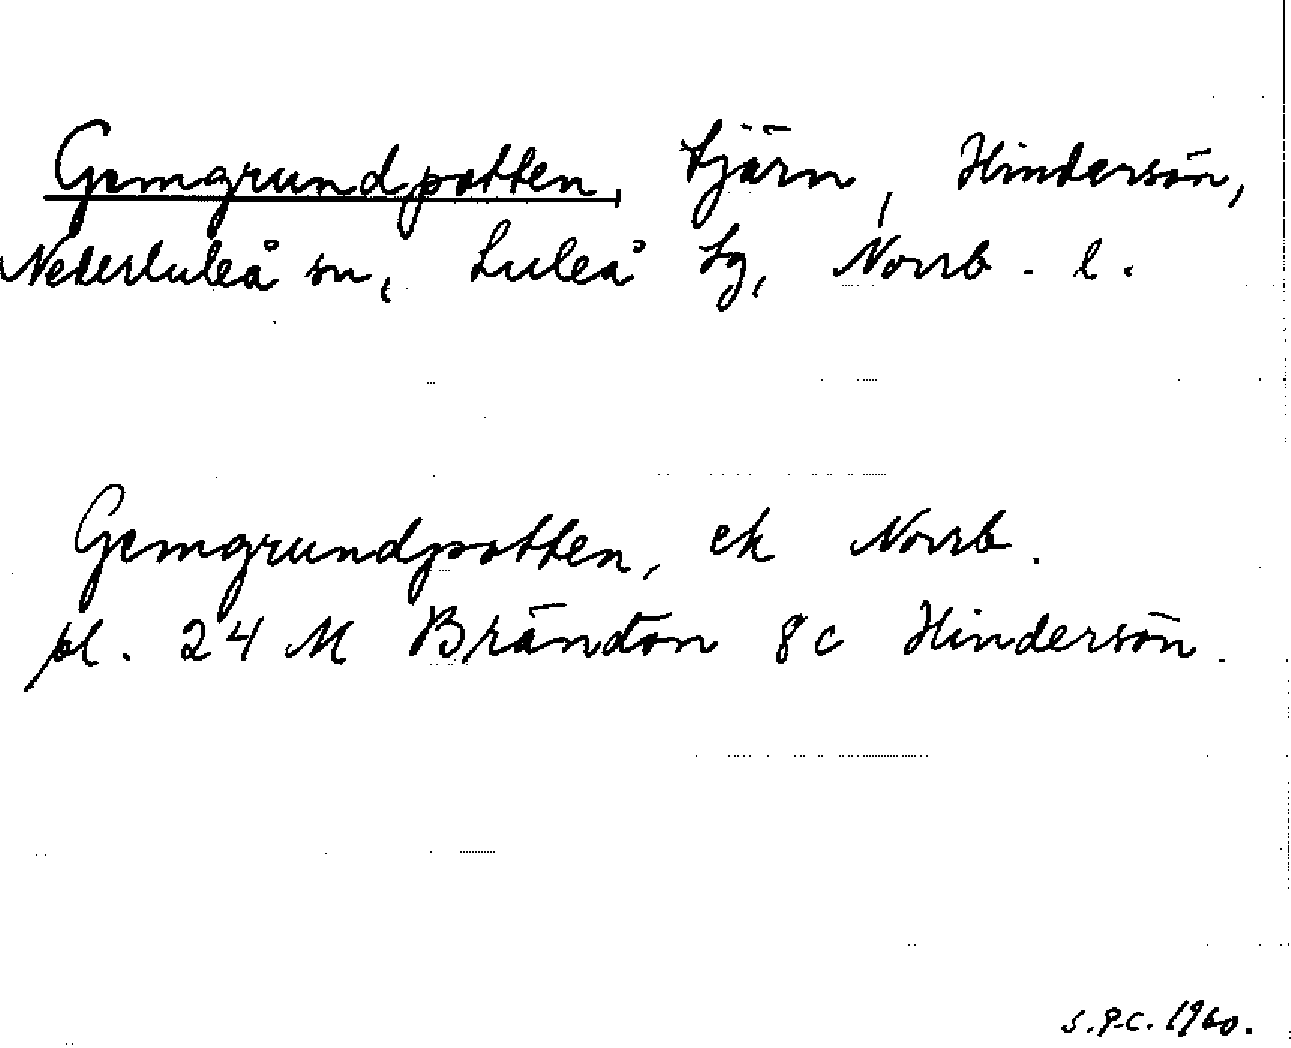 Gemgrundpotten, tjärn, Hindersön,
Nederluleå sn, Luleå tg, Norrb. l.
Gemgrundpotten, ek Norrb.
bl. 24 M Brändön 8c Hindersön.
S.P.C. 1960.